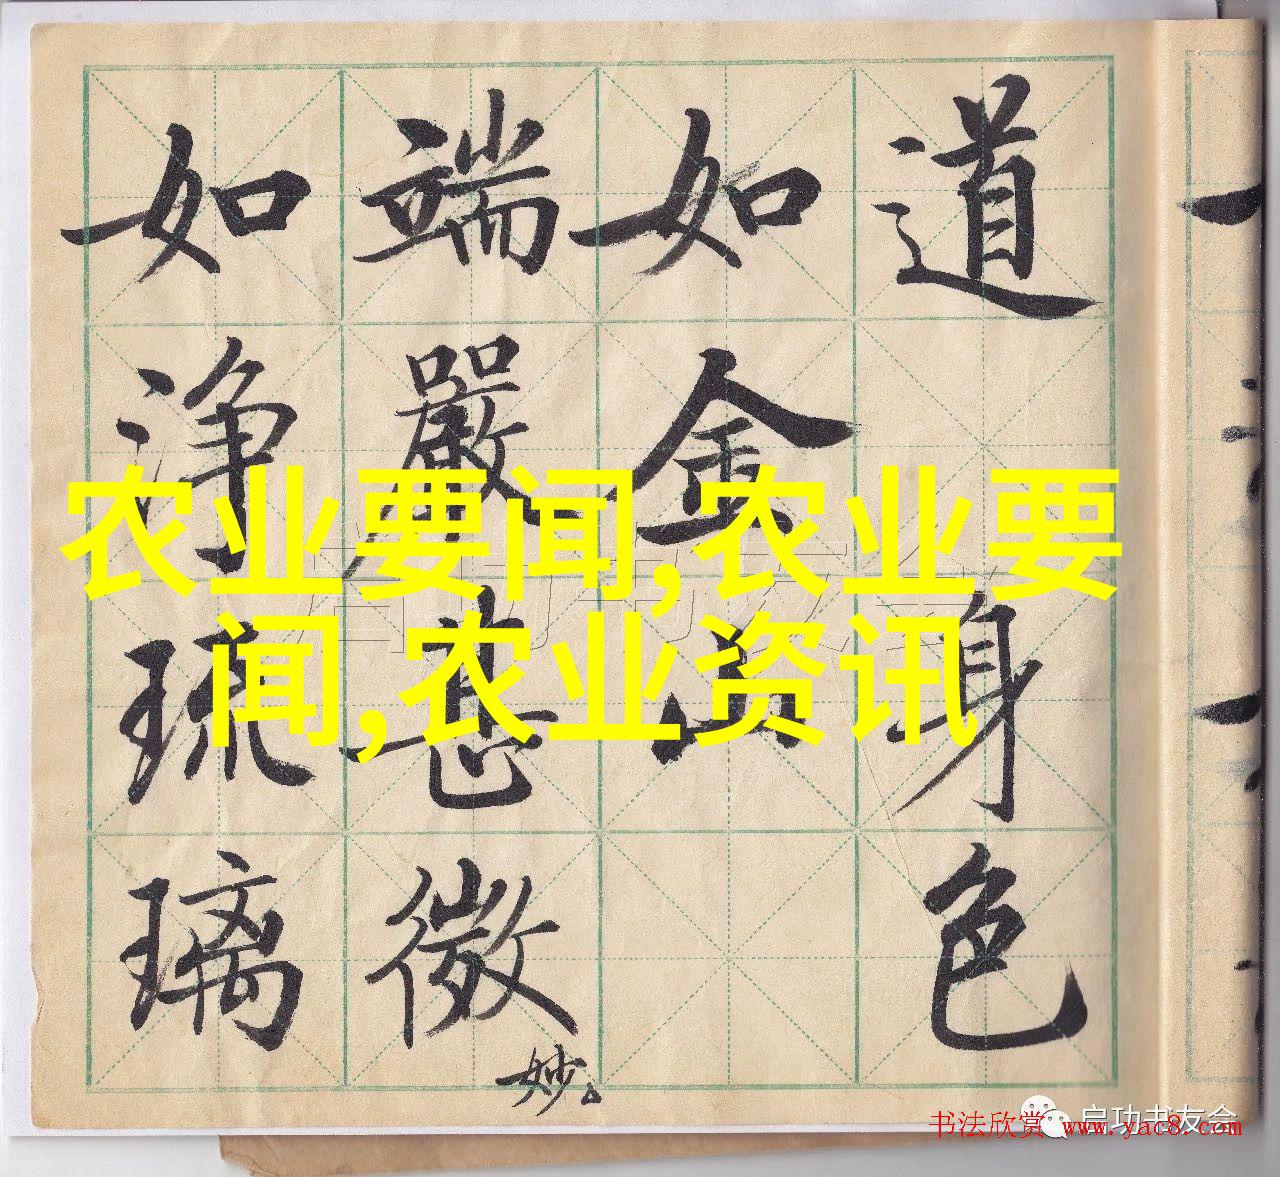 道身色
如金山
端嚴甚微妙
如浄琉璃
农业要闻,农业要
闻,农业资讯
启功书友会
书法欣赏 www.yac8.com